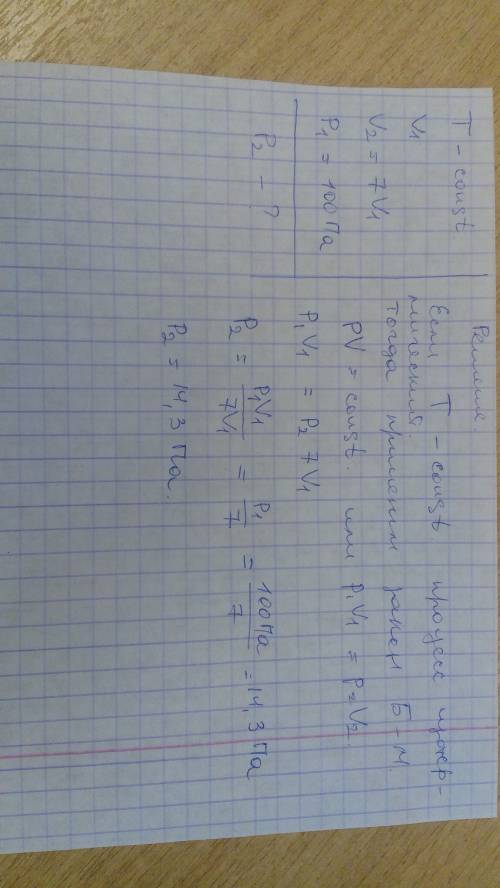 T - const
V1
V2 = 7V1
P1 = 100 Па
P2 - ?
Решение
Если T - const процесс изотер-
мический.
Тогда применим закон Б-М.
PV = const. или P1V1 = P2V2.
P1V1 = P2 7V1
P2 = P1V1/7V1 = P1/7 = 100Па/7 = 14,3 Па
P2 = 14,3 Па.